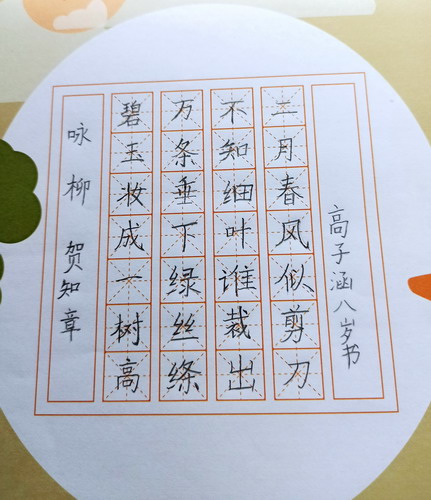 咏柳 贺知章
碧玉妆成一树高
万条垂下绿丝绦
不知细叶谁裁出
二月春风似剪刀
高子涵八岁书